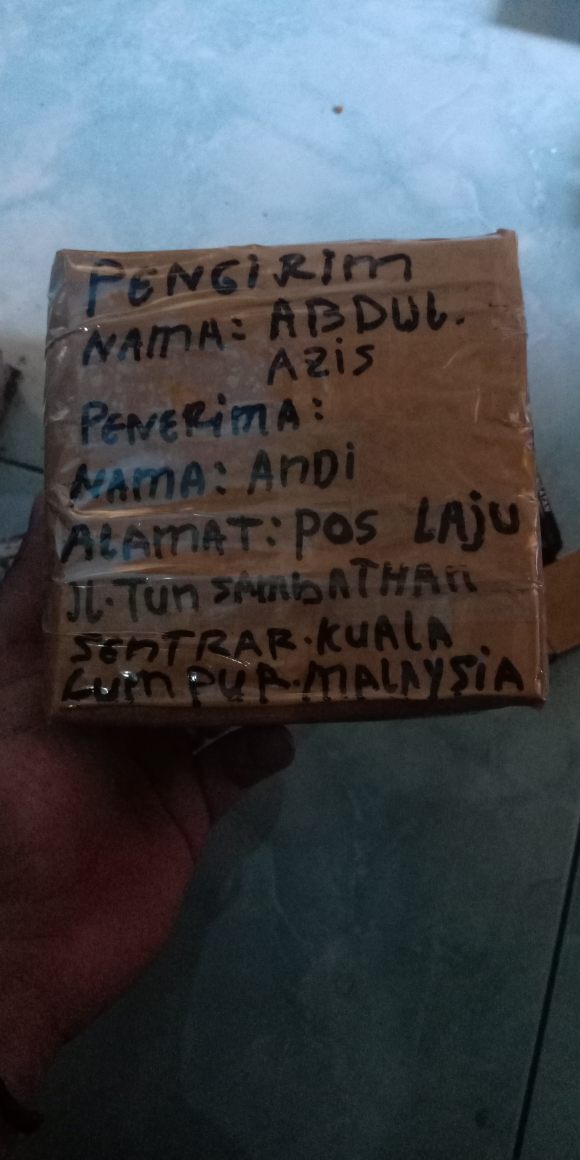 PENGIRIM
NAMA: ABDUL.
AZIS
PENERIMA:
NAMA: ANDI
ALAMAT: POS LAJU
JL. TUN SAMBATHAN
SENTRAR. KUALA
LUMPUR. MALAYSIA